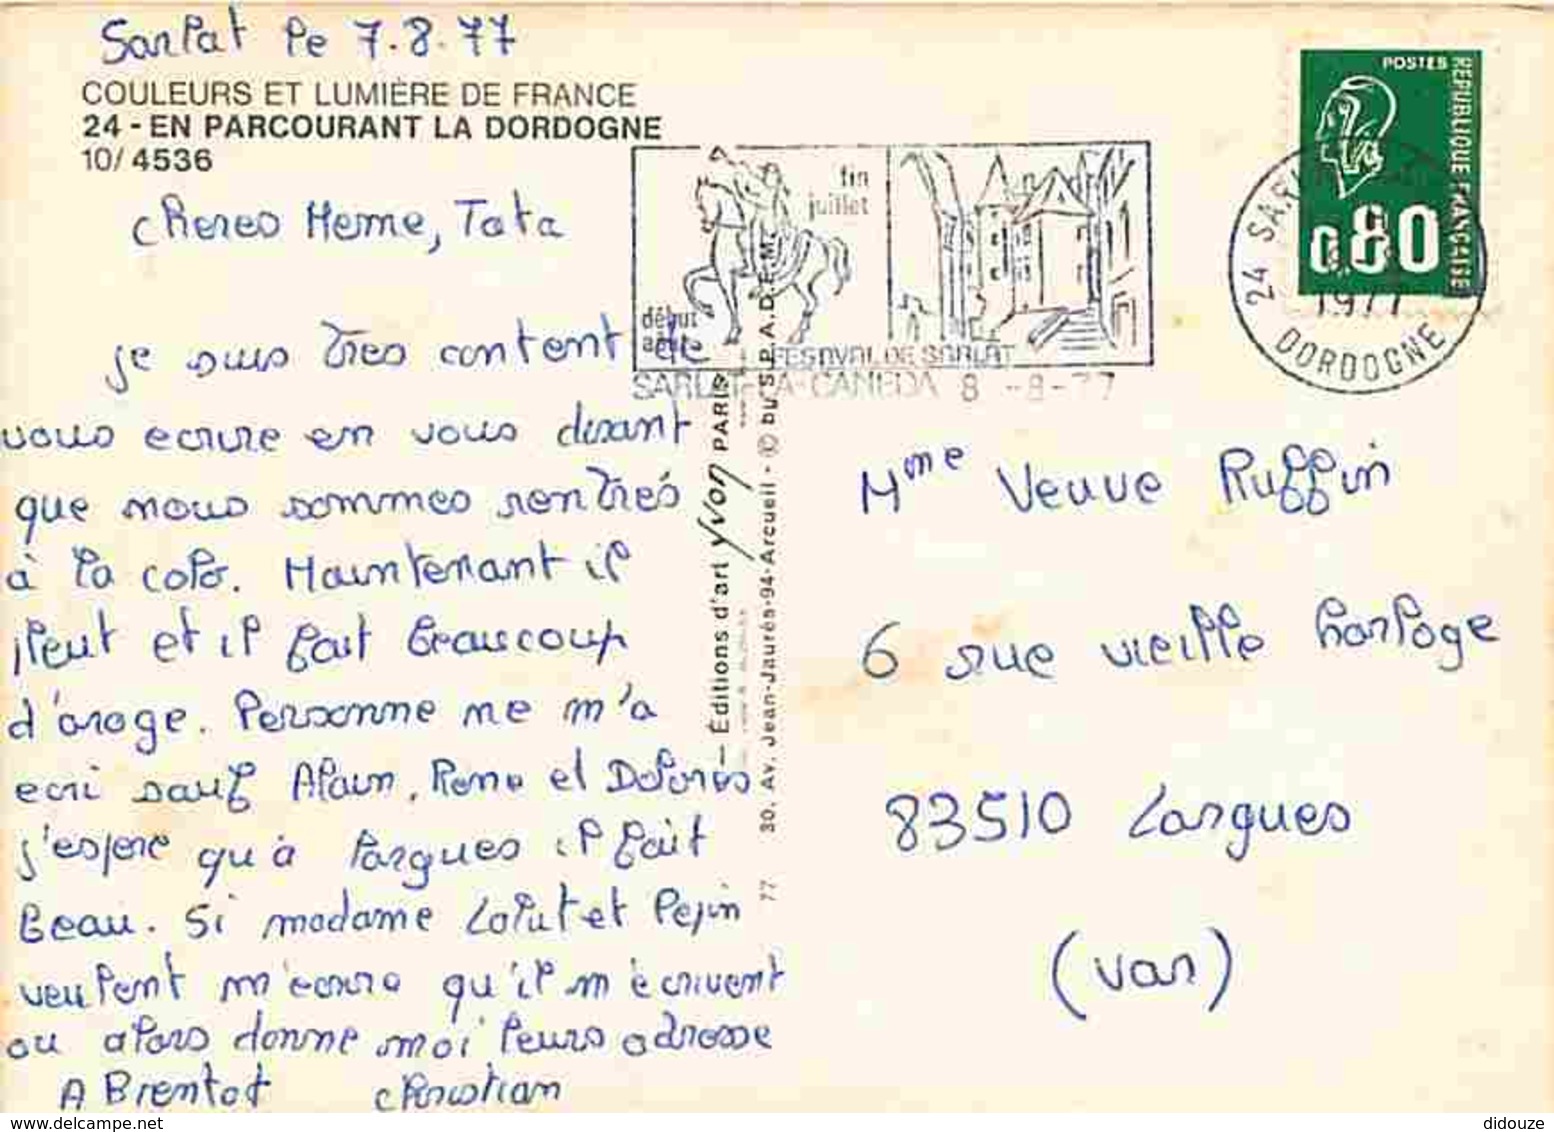 Sarlat le 7.8.77
COULEURS ET LUMIÈRE DE FRANCE
24 - EN PARCOURANT LA DORDOGNE
10/ 4536
cheres Meme, Tata
je suis tres content de
vous ecrire en vous disant
que nous sommes rentrés
à la colo. Maintenant il
pleut et il fait beaucoup
d'orage. Personne ne m'a
ecri sauf Alain, Rene et Dolores
j'espere qu'a Lorgues il fait
beau. Si madame Lolut et Pepin
veulent m'ecrire qu'il m'ecrivent
ou alors donne moi leurs adresse
A Bientot christian
— Éditions d'art yvon PARIS
30, Av. Jean-Jaurès-94-Arcueil - © by S.P.A.D.E.M.
77
fin
juillet
début
août
FESTIVAL DE SARLAT
SARLAT-LA-CANEDA 8 -8-77
POSTES
REPUBLIQUE FRANCAISE
0.80
24 SARLAT
1977
DORDOGNE
Mme Veuve Ruffin
6 rue vieille horloge
83510 Lorgues
(var)
didouze
www.delcampe.net